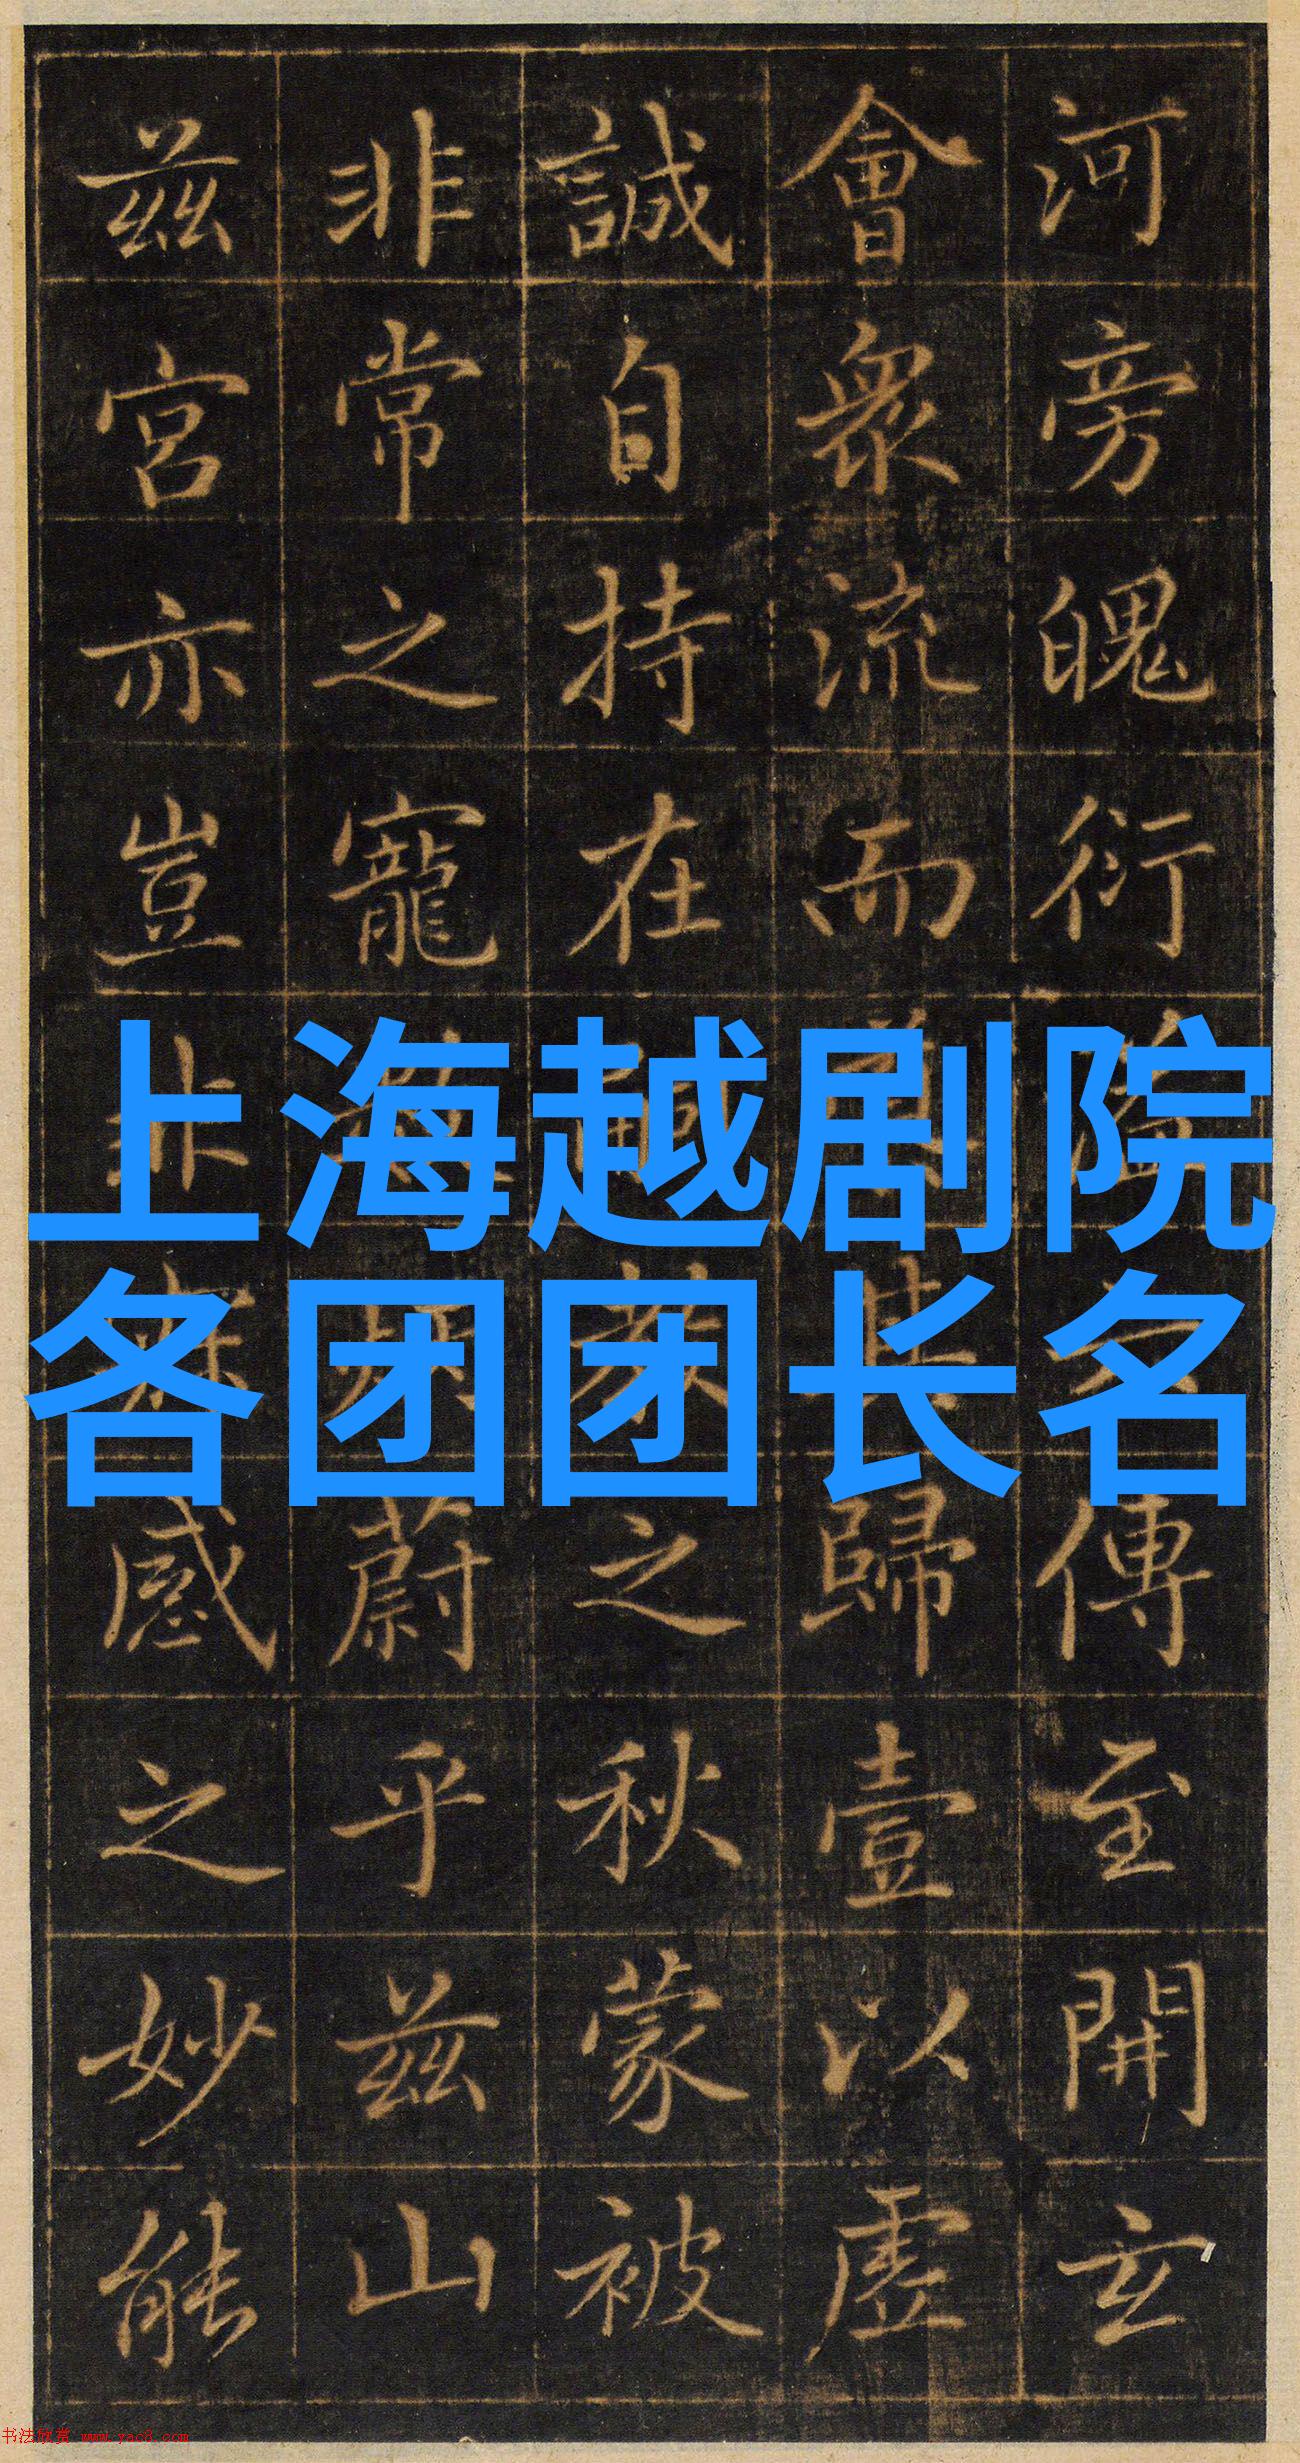 河旁睨衍 傳至開玄
會衆流而 歸壹以虛
誠自持在 之秋蒙被
非常之寵 蔚乎茲山
茲宮亦豈非 感之妙能
上海越剧院
各团团长名
书法欣赏 www.yac8.com